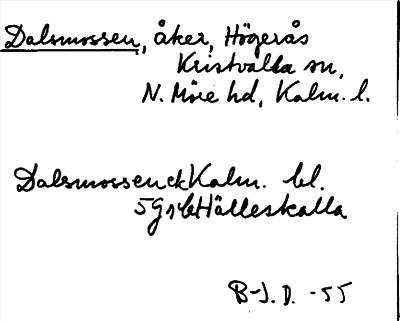 Dalsmossen, åker, Högerås
Kristvalla sn,
N. Möre hd, Kalm. l.
Dalsmossen ek Kalm. bl.
5G Hälleskalla
B-J. D. -55